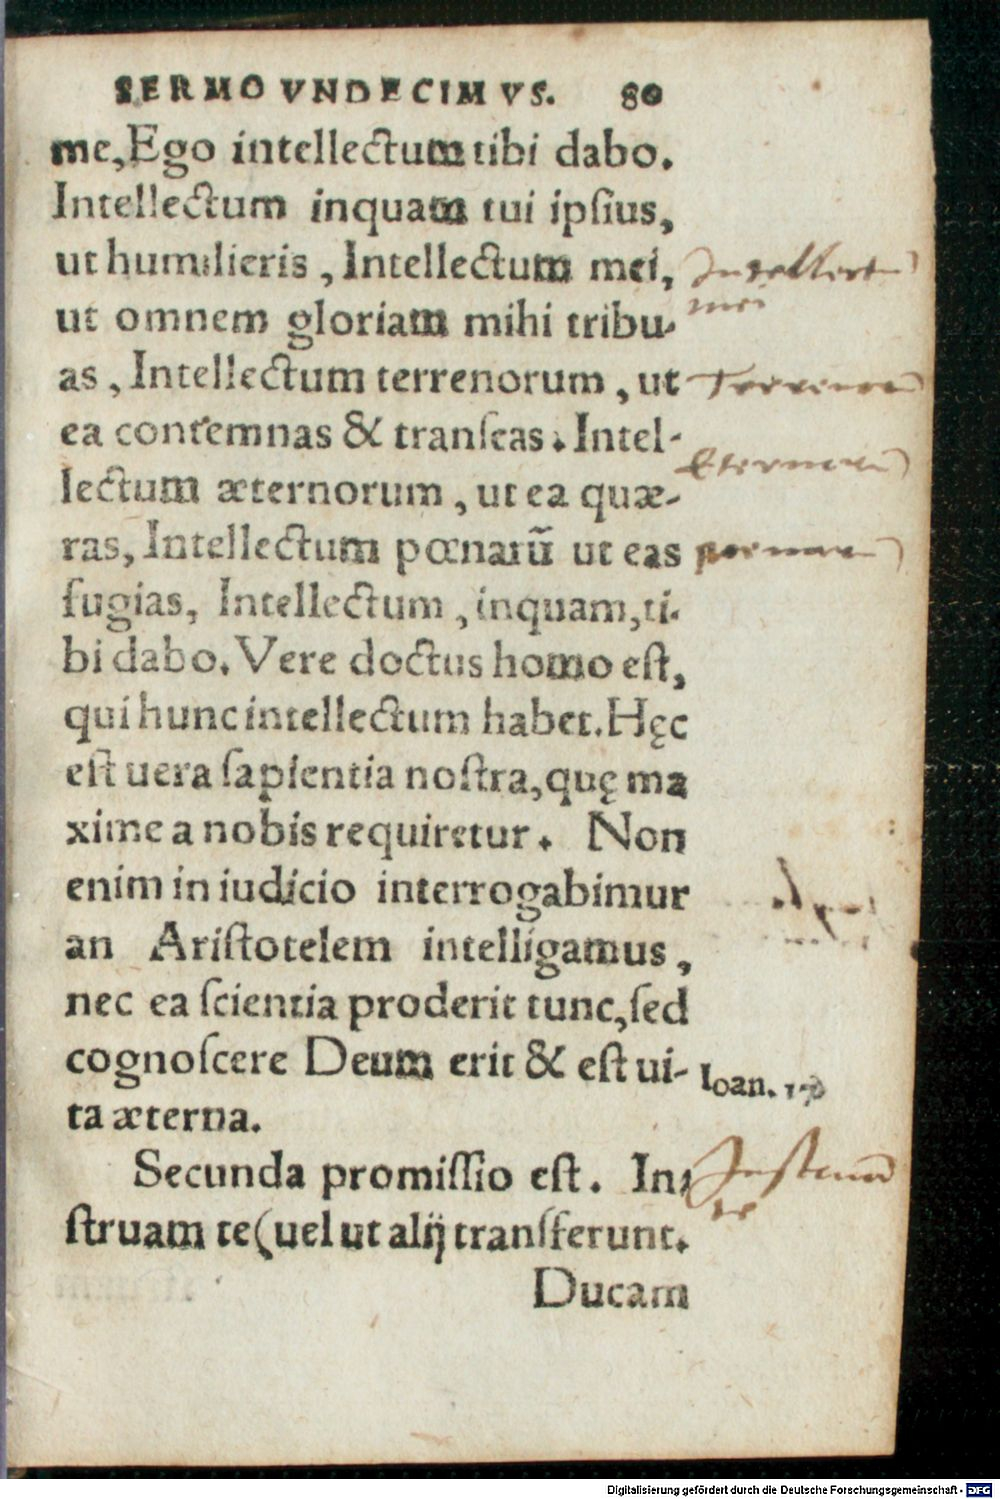 SERMO VNDECIMVS. 80
me, Ego intellectum tibi dabo.
Intellectum inquam tui ipſius,
ut humilieris, Intellectum mei,
Intellectū
mei
ut omnem gloriam mihi tribu-
as, Intellectum terrenorum, ut
ea contemnas & tranſeas. Intel-
lectum æternorum, ut ea quæ-
ras, Intellectum pœnarū ut eas
fugias, Intellectum, inquam, ti-
bi dabo. Vere doctus homo eſt,
qui hunc intellectum habet. Hęc
eſt uera ſapientia noſtra, quę ma
xime a nobis requiretur. Non
enim in iudicio interrogabimur
an Ariſtotelem intelligamus,
nec ea ſcientia proderit tunc, ſed
cognoſcere Deum erit & eſt ui-
Ioan. 17
ta æterna.
Secunda promiſſio eſt. In-
ſtruam te (uel ut alij tranſferunt.
te
Ducam
Digitalisierung gefördert durch die Deutsche Forschungsgemeinschaft - DFG